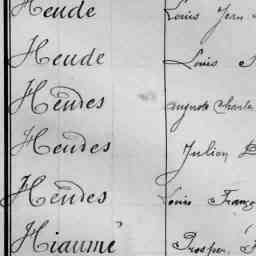 Heude Louis Jean
Heude Louis
Heudes Auguste Charle
Heudes Julien
Heudes Louis Franço
Hiaumé Prosper,